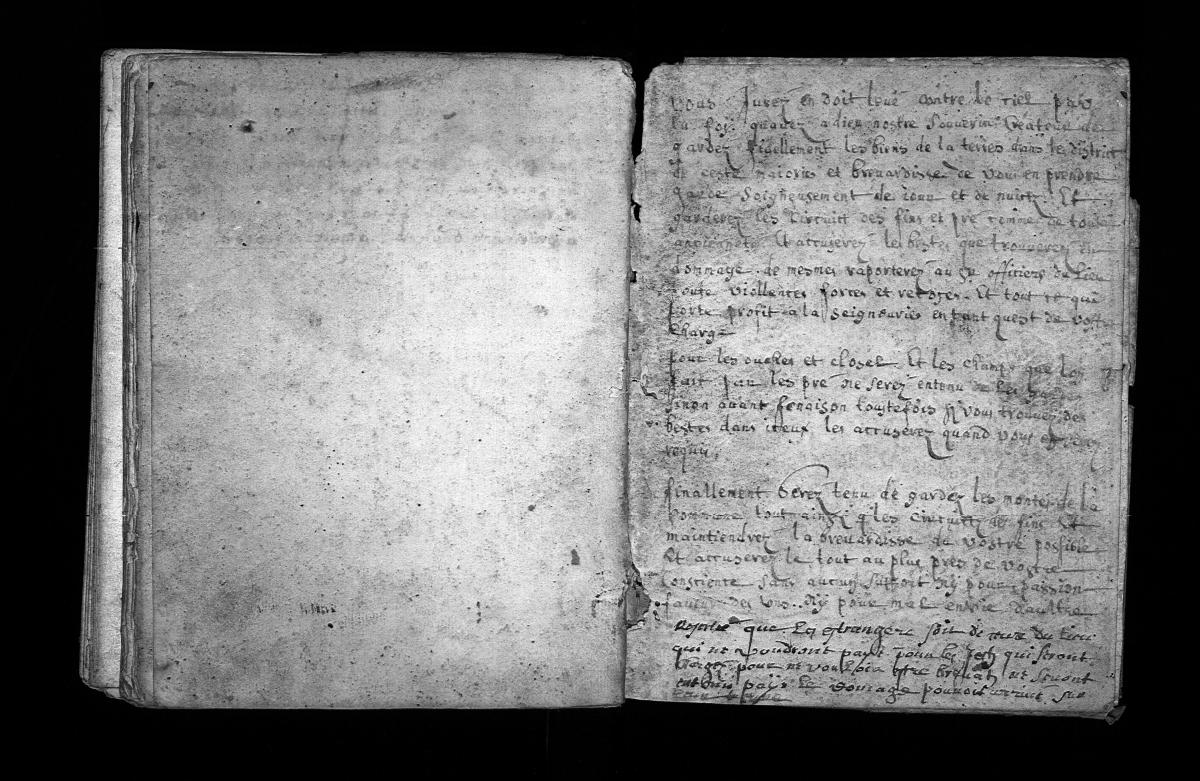 Vous Jurez en doit levé contre le ciel par
la foy quavez a dieu nostre Souverin Createur de
gardez fidellement les biens de la terres dans les district
de ceste mairies et brevardisse de vous en prendre
garde Soigneusement de jour et de nuictz. Et
garderez les Circuict des fins et pré comme de toute
ancienneté Et accuserez les bestes que trouverez en
dommage. de mesmes raporterez au Sr officiers du Lieu
toute viollentes forces et Et tout ce que
porte profit a la Seigneuries en tant quest de vostre
charge
pour les ouches et closel Et les champs que Lon
fait par les pré Ne Serez entenu de les
Sinon avant fenaison toutefois Sy vous trouvez des
bestes dans iceux les accuserez quand vous en Serez
requis.
finallement Serez tenu de gardez les montes de la
commune tout ainsi q les circuictz des fins Et
maintiendrez la brevardisse du vostre possible
Et accuserez le tout au plus pres de vostre
Consciente Sans aucun Suport Ny pour passion
faveur des uns. Ny pour mal envie daultre
que Les estrangere soit de ceux du Lieu
qui ne voudront payé pour les qui seront
pour ne vouloir estre ne seront
payé le domage pouvoit sur